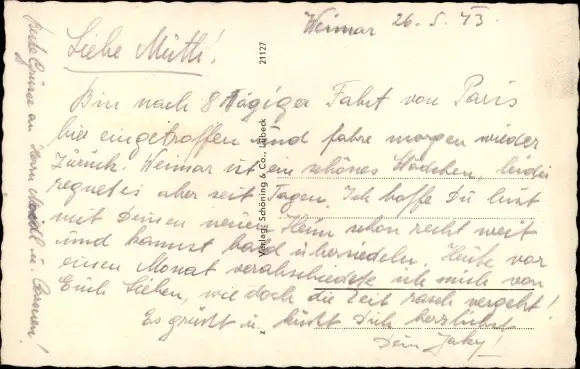 Weimar 26.5.43.
Liebe Mutti!
Bin nach 8 tägiger Fahrt von Paris
hier eingetroffen und fahre morgen wieder
zurück. Weimar ist ein schönes Städchen, leider
regnet es aber seit Tagen. Ich hoffe Du bist
mit Deinem neuen Heim schon recht weit
und kannst bald übersiedeln. Heute vor
einem Monat verabschiedete ich mich von
Euch Lieben, wie doch die Zeit rasch vergeht!
Es grüßt u. küßt Dich herzlichst
Dein
Beste Grüsse an Herrn u.
21127
Verlag: Schöning & Co., Lübeck
z